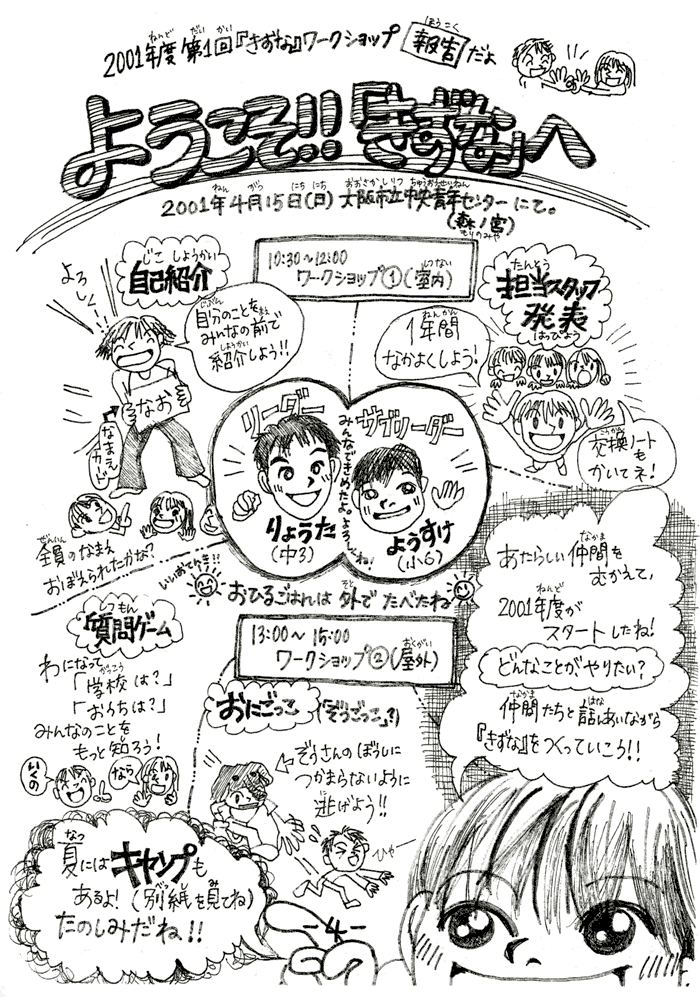 2001年度 第1回『きずな』ワークショップ 報告 だよ
ようこそ!!『きずな』へ
2001年4月15日(日) 大阪市立中央青年センターにて。
(森ノ宮)
自己紹介
よろしく!
自分のことを
みんなの前で
紹介しよう!!
なお
なまえカード
全員のなまえ
おぼえられたかな?
10:30〜12:00
ワークショップ①(室内)
担当スタッフ
発表
1年間
なかよくしよう!
交換ノート
も
かいてネ!
リーダー
りょうた
(中3)
サブリーダー
ようすけ
(小6)
みんなできめたよ。よろしくね!
いいおてんき!!
おひるごはんは外でたべたね
13:00〜15:00
ワークショップ②(屋外)
質問ゲーム
わになって
「学校は?」
「おうちは?」
みんなのことを
もっと知ろう!
いくの
なら
おにごっこ(「ぞうごっこ」?)
ぞうさんのぼうしに
つかまらないように
逃げよう!!
ひゃー
あたらしい仲間を
むかえて、
2001年度が
スタートしたね!
どんなことが、やりたい?
仲間たちと話しあいながら
『きずな』をつくっていこう!!
夏にはキャンプも
あるよ!(別紙を見てね)
たのしみだね!!
-4-